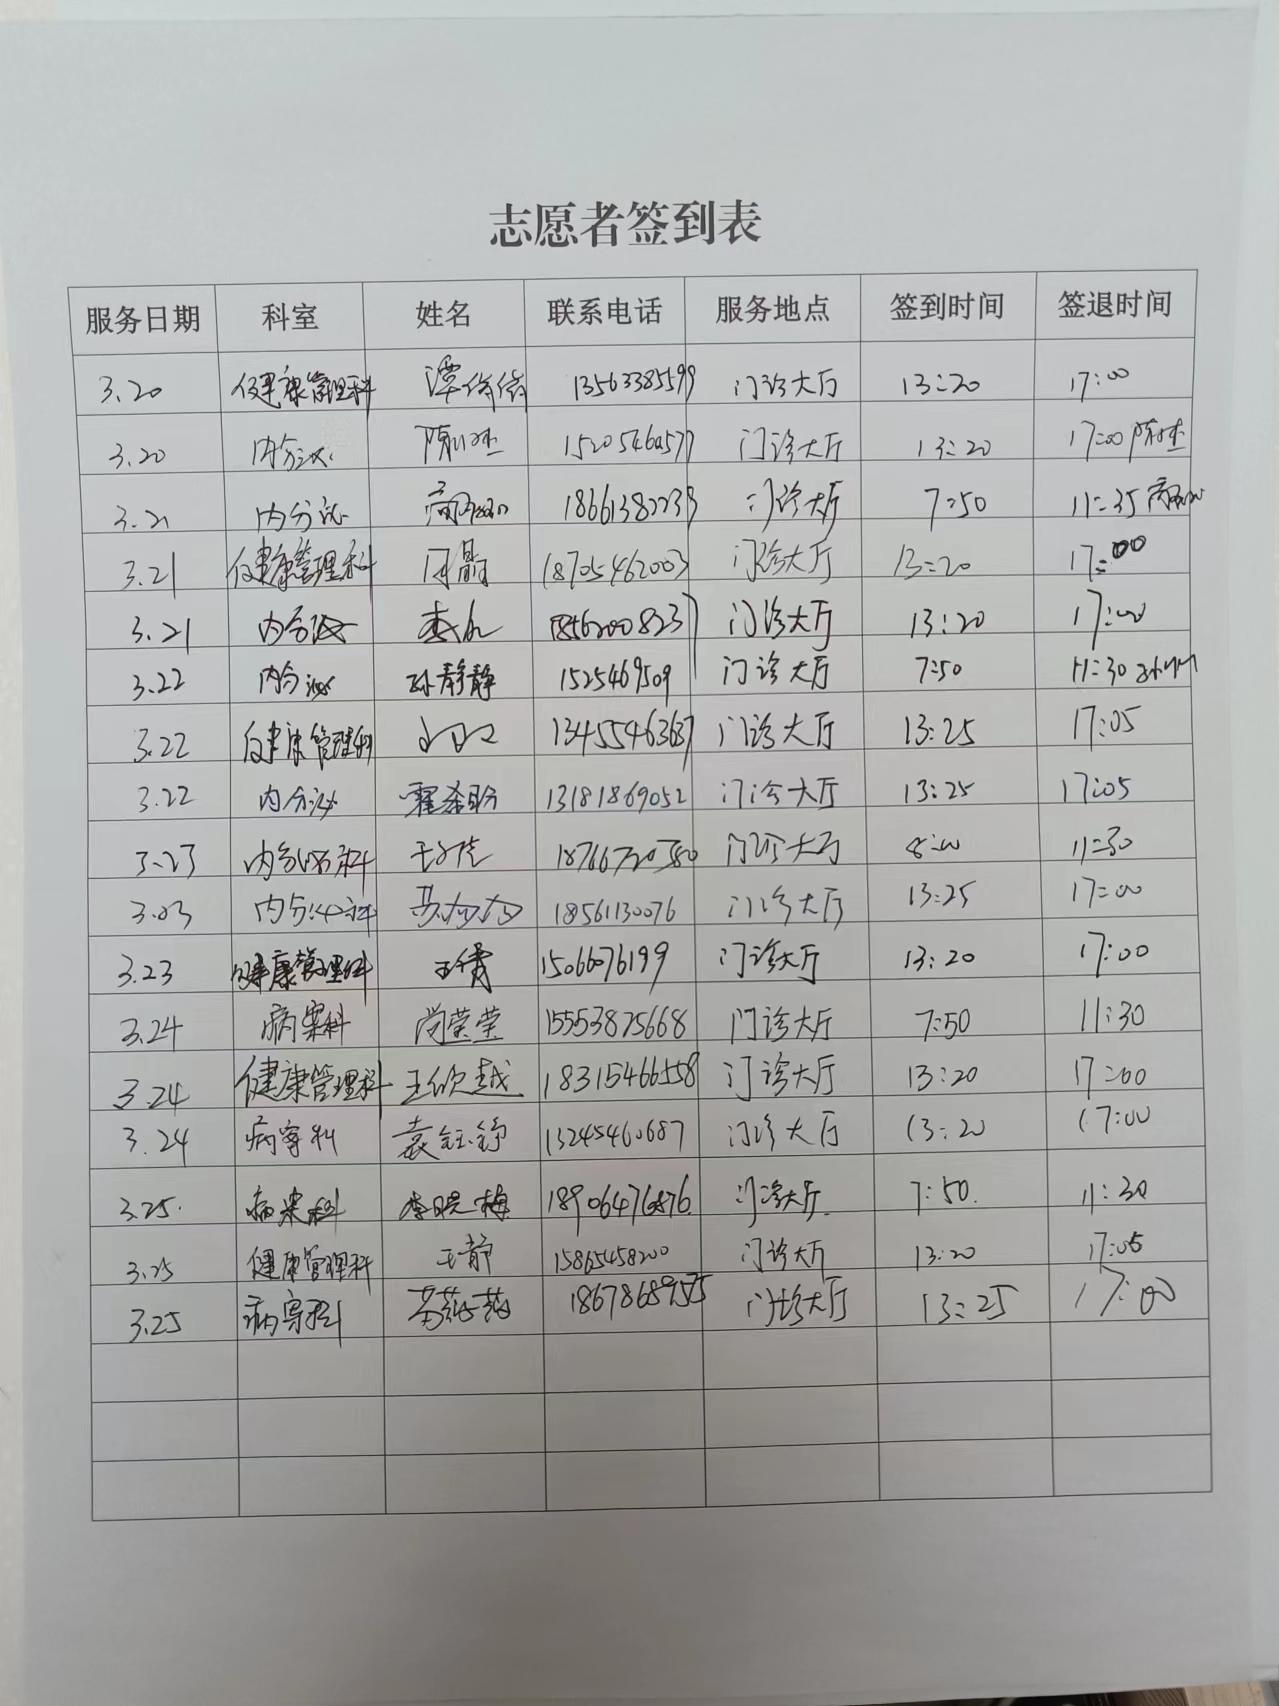 志愿者签到表
服务日期 科室 姓名 联系电话 服务地点 签到时间 签退时间
3.20 健康管理科 谭 13563385599 门诊大厅 13:20 17:00
3.20 内分泌 门诊大厅 13:20 17:00
3.21 内分泌 18661382233 门诊大厅 7:50 11:35
3.21 健康管理科 闫晶 18705462003 门诊大厅 13:20 17:00
3.21 内分泌 18562008237 门诊大厅 13:20 17:00
3.22 内分泌 孙静静 1525469509 门诊大厅 7:50 11:30
3.22 健康管理科 13455463637 门诊大厅 13:25 17:05
3.22 内分泌 霍希盼 13181869052 门诊大厅 13:25 17:05
3.23 内分泌科 18766720380 门诊大厅 8:00 11:30
3.03 内分泌科 18561130076 门诊大厅 13:25 17:00
3.23 健康管理科 王倩 15066076199 门诊大厅 13:20 17:00
3.24 病案科 尚荣莹 15553825668 门诊大厅 7:50 11:30
3.24 健康管理科 王欣越 18315466558 门诊大厅 13:20 17:00
3.24 病案科 袁钰铮 13245460687 门诊大厅 13:20 17:00
3.25. 病案科 李晓梅 18906476876. 门诊大厅. 7:50. 11:30
3.25 健康管理科 王静 15865458200 门诊大厅 13:20 17:05
3.25 病案科 18678689575 门诊大厅 13:25 17:00